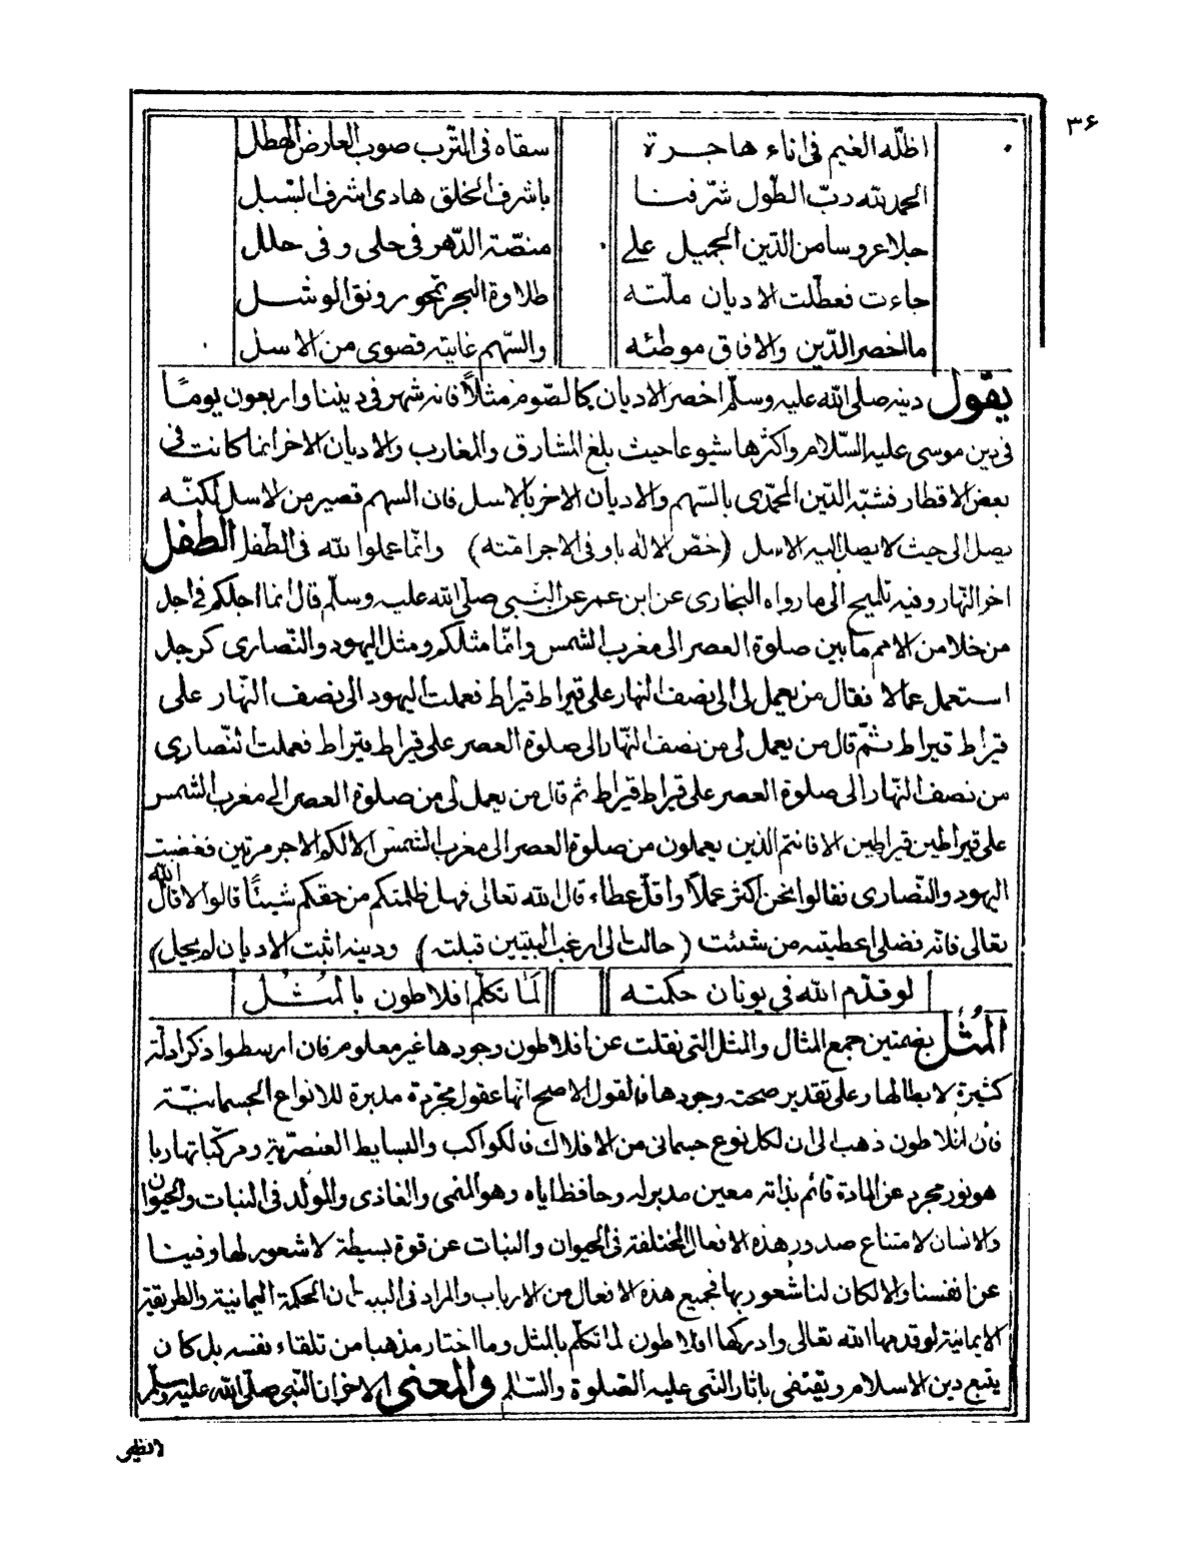 ٣۶
اظلّه الغيم فى اناء هاجرة سقاه فى الترب صوب العارض الهطل
الحمد لله ربّ الطّول شرّفنا باشرف الخلق هادى اشرف السّبل
جلا عروسا من الدّين الجميل على منصّة الدّهر فى حلى وفى حلل
جاءت فعطّلت الاديان ملّته طلاوة البحر تمحو رونق الوشل
ما اخصر الدّين والافاق موطئه والسّهم غايته قصوى من الاسل
يقول دينه صلى الله عليه وسلّم اخصر الاديان كالصّوم مثلاً فانه شهر فى ديننا واربعون يومًا
فى دين موسى عليه السّلام واكثرها شيوعا حيث بلغ المشارق والمغارب والاديان الاخر انما كانت فى
بعض الاقطار فشبّه الدّين المحمّدى بالسّهم والاديان الاخر بالاسل فان السهم قصير من الاسل لكنّه
يصل الى حيث لا يصل اليه الاسل (خصّ الاله باوفى الاجر امّته) وانّما عملوا لله فى الطّفل الطفل
اخر النّهار وفيه تلميح الى ما رواه البخارى عن ابن عمر عن النّبى صلّى الله عليه وسلّم قال انما اجلكم فى اجل
من خلا من الامم ما بين صلوة العصر الى مغرب الشمس وانّما مثلكم ومثل اليهود والنّصارى كرجل
استعمل عمالا فقال من يعمل لى الى نصف النهار على قيراط قيراط فعملت اليهود الى نصف النّهار على
قيراط قيراط ثمّ قال من يعمل لى من نصف النّهار الى صلوة العصر على قيراط قيراط فعملت النّصارى
من نصف النّهار الى صلوة العصر على قيراط قيراط ثم قال من يعمل لى من صلوة العصر الى مغرب الشمس
على قيراطين قيراطين الا فانتم الذين يعملون من صلوة العصر الى مغرب الشمس الا لكم الاجر مرتين فغضبت
اليهود والنّصارى فقالوا نحن اكثر عملاً واقلّ عطاء قال الله تعالى فهل ظلمتكم من حقكم شيئًا قالوا لا قال الله
تعالى فانّه فضلى اعطيته من شئت (حالت الى ارغب البيتين قبلته) ودينه اثبت الاديان لم يحل)
لو قدّم الله فى يونان حكمته لمّا تكلم افلاطون بالمُثُل
المُثُل بضمتين جمع المثال والمثل التى نقلت عن افلاطون وجودها غير معلوم فان ارسطوا ذكر ادلّة
كثيرة لابطالها وعلى تقدير صحته وجودها فالقول الاصح انّها عقول مجرّدة مدبرة للانواع الجسمانيّة
فان افلاطون ذهب الى ان لكل نوع جسمانى من الافلاك فالكواكب والبسايط العنصريّة ومركّباتها ربا
هو نور مجرد عن المادة قائم بذاته معين مدبر له وحافظ اياه وهو المنمى والغاذى والمولّد فى النبات والحيوان
والانسان لامتناع صدور هذه الافعال المختلفة فى الحيوان والنبات عن قوة بسيطة لا شعور لها وفينا
عن انفسنا والا لكان لنا شعور بها فجميع هذه الافعال من الارباب والمراد فى البيت ان الحكمة اليمانية والطريقة
الايمانية لو قدمها الله تعالى وادركها افلاطون لما تكلّم بالمثل وما اختار مذهبا من تلقاء نفسه بل كان
يتبع دين الاسلام ويقتفى باثار النّبى عليه الصّلوة والسّلام والمعنى الاخر ان النّبى صلّى الله عليه وسلّم
لانظير